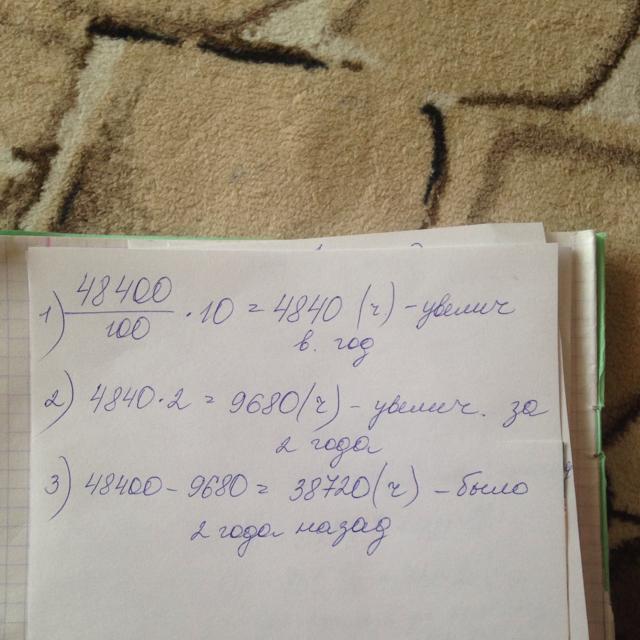 1) 48400/100 · 10 = 4840 (ч) - увелич
в. год
2) 4840 · 2 = 9680 (ч) - увелич. за
2 года
3) 48400 - 9680 = 38720 (ч) - было
2 года назад